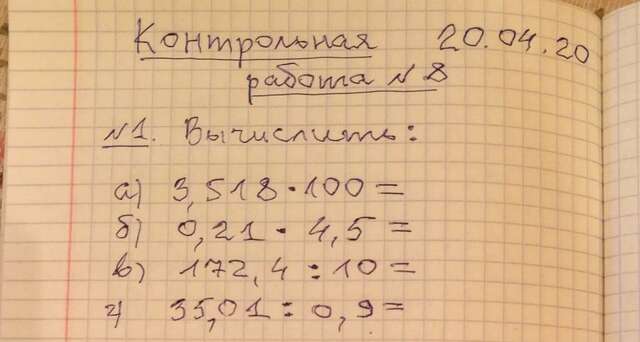 Контрольная 20.04.20
работа №8
№1. Вычислить:
а) 3,518 · 100 =
б) 0,21 · 4,5 =
в) 172,4 : 10 =
г) 35,01 : 0,9 =